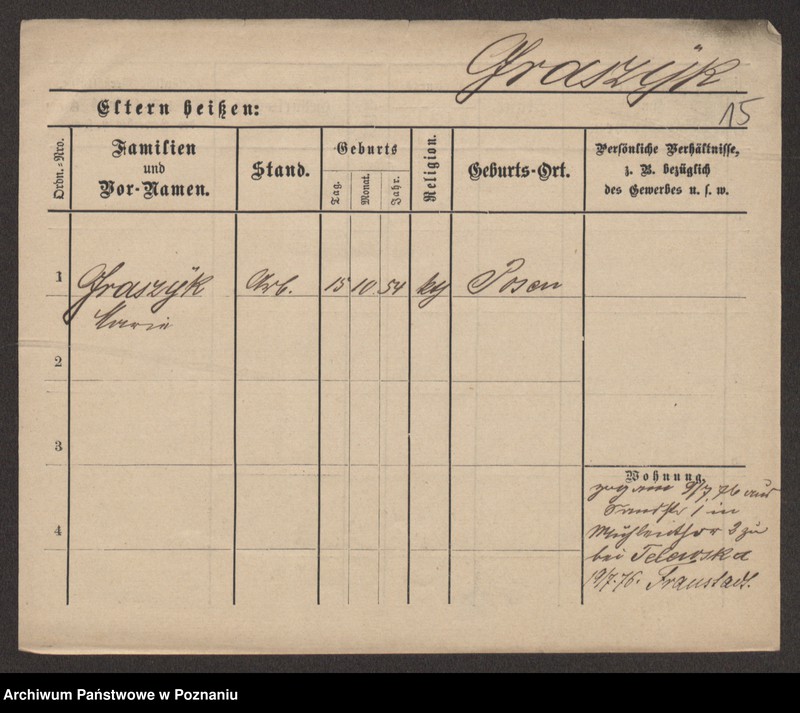 Graszÿk
15
Eltern heißen:
Ordn.-Nro.
Familien
und
Vor-Namen.
Stand.
Geburts
Tag.
Monat.
Jahr.
Religion.
Geburts-Ort.
Persönliche Verhältnisse,
z. B. bezüglich
des Gewerbes u. s. w.
1 Graszÿk Arb. 15 10 54 kth Posen
Marie
2
3
Wohnung.
zog am 9/7. 76 aus
Sandstr 1 in
Mühlenthor 3 zu
4
bei Telewska
19/7. 76. Fraustadt.
Archiwum Państwowe w Poznaniu